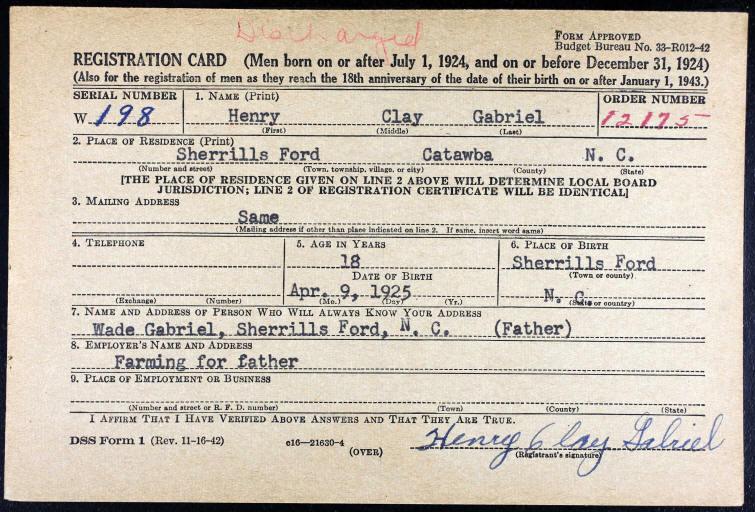 Discharged
FORM APPROVED
Budget Bureau No. 33-R012-42
REGISTRATION CARD (Men born on or after July 1, 1924, and on or before December 31, 1924)
(Also for the registration of men as they reach the 18th anniversary of the date of their birth on or after January 1, 1943.)
SERIAL NUMBER 1. NAME (Print) ORDER NUMBER
W 198 Henry Clay Gabriel 12175
(First) (Middle) (Last)
2. PLACE OF RESIDENCE (Print)
Sherrills Ford Catawba N. C.
(Number and street) (Town, township, village, or city) (County) (State)
[THE PLACE OF RESIDENCE GIVEN ON LINE 2 ABOVE WILL DETERMINE LOCAL BOARD
JURISDICTION; LINE 2 OF REGISTRATION CERTIFICATE WILL BE IDENTICAL]
3. MAILING ADDRESS
Same
(Mailing address if other than place indicated on line 2. If same, insert word same)
4. TELEPHONE 5. AGE IN YEARS 6. PLACE OF BIRTH
18 Sherrills Ford
DATE OF BIRTH (Town or county)
Apr. 9, 1925 N. C.
(Exchange) (Number) (Mo.) (Day) (Yr.) (State or country)
7. NAME AND ADDRESS OF PERSON WHO WILL ALWAYS KNOW YOUR ADDRESS
Wade Gabriel, Sherrills Ford, N. C. (Father)
8. EMPLOYER'S NAME AND ADDRESS
Farming for father
9. PLACE OF EMPLOYMENT OR BUSINESS
(Number and street or R. F. D. number) (Town) (County) (State)
I AFFIRM THAT I HAVE VERIFIED ABOVE ANSWERS AND THAT THEY ARE TRUE.
DSS Form 1 (Rev. 11-16-42) c16—21630-4 Henry Clay Gabriel
(OVER) (Registrant's signature)